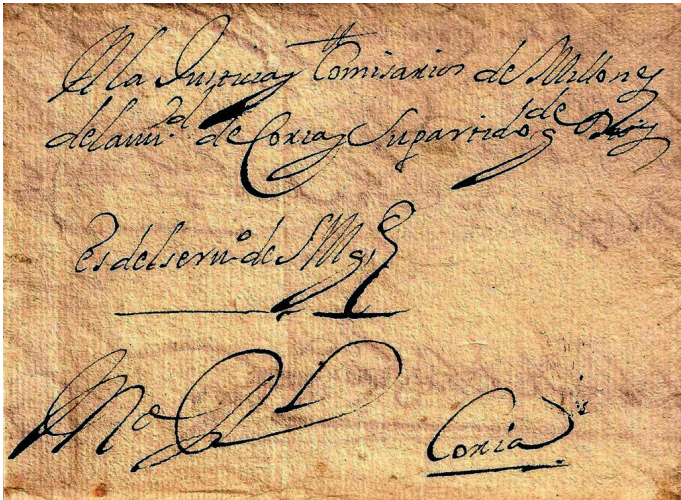 A la Justicia y Comisarios de Millones
de la ciu.d de Coria y Su partido g de Dios
Es del serui.o de S Mg.
Coria